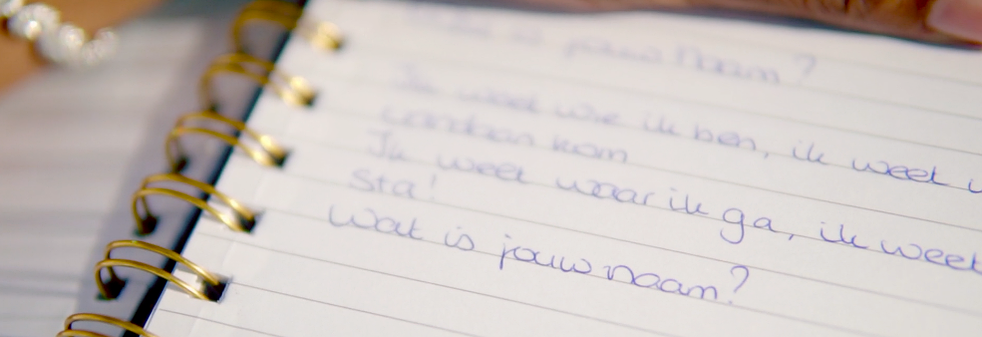 is jouw naam?
Ik weet wie ik ben, ik weet
vandaan kom
Ik weet waar ik ga, ik weet
Sta!
Wat is jouw naam?